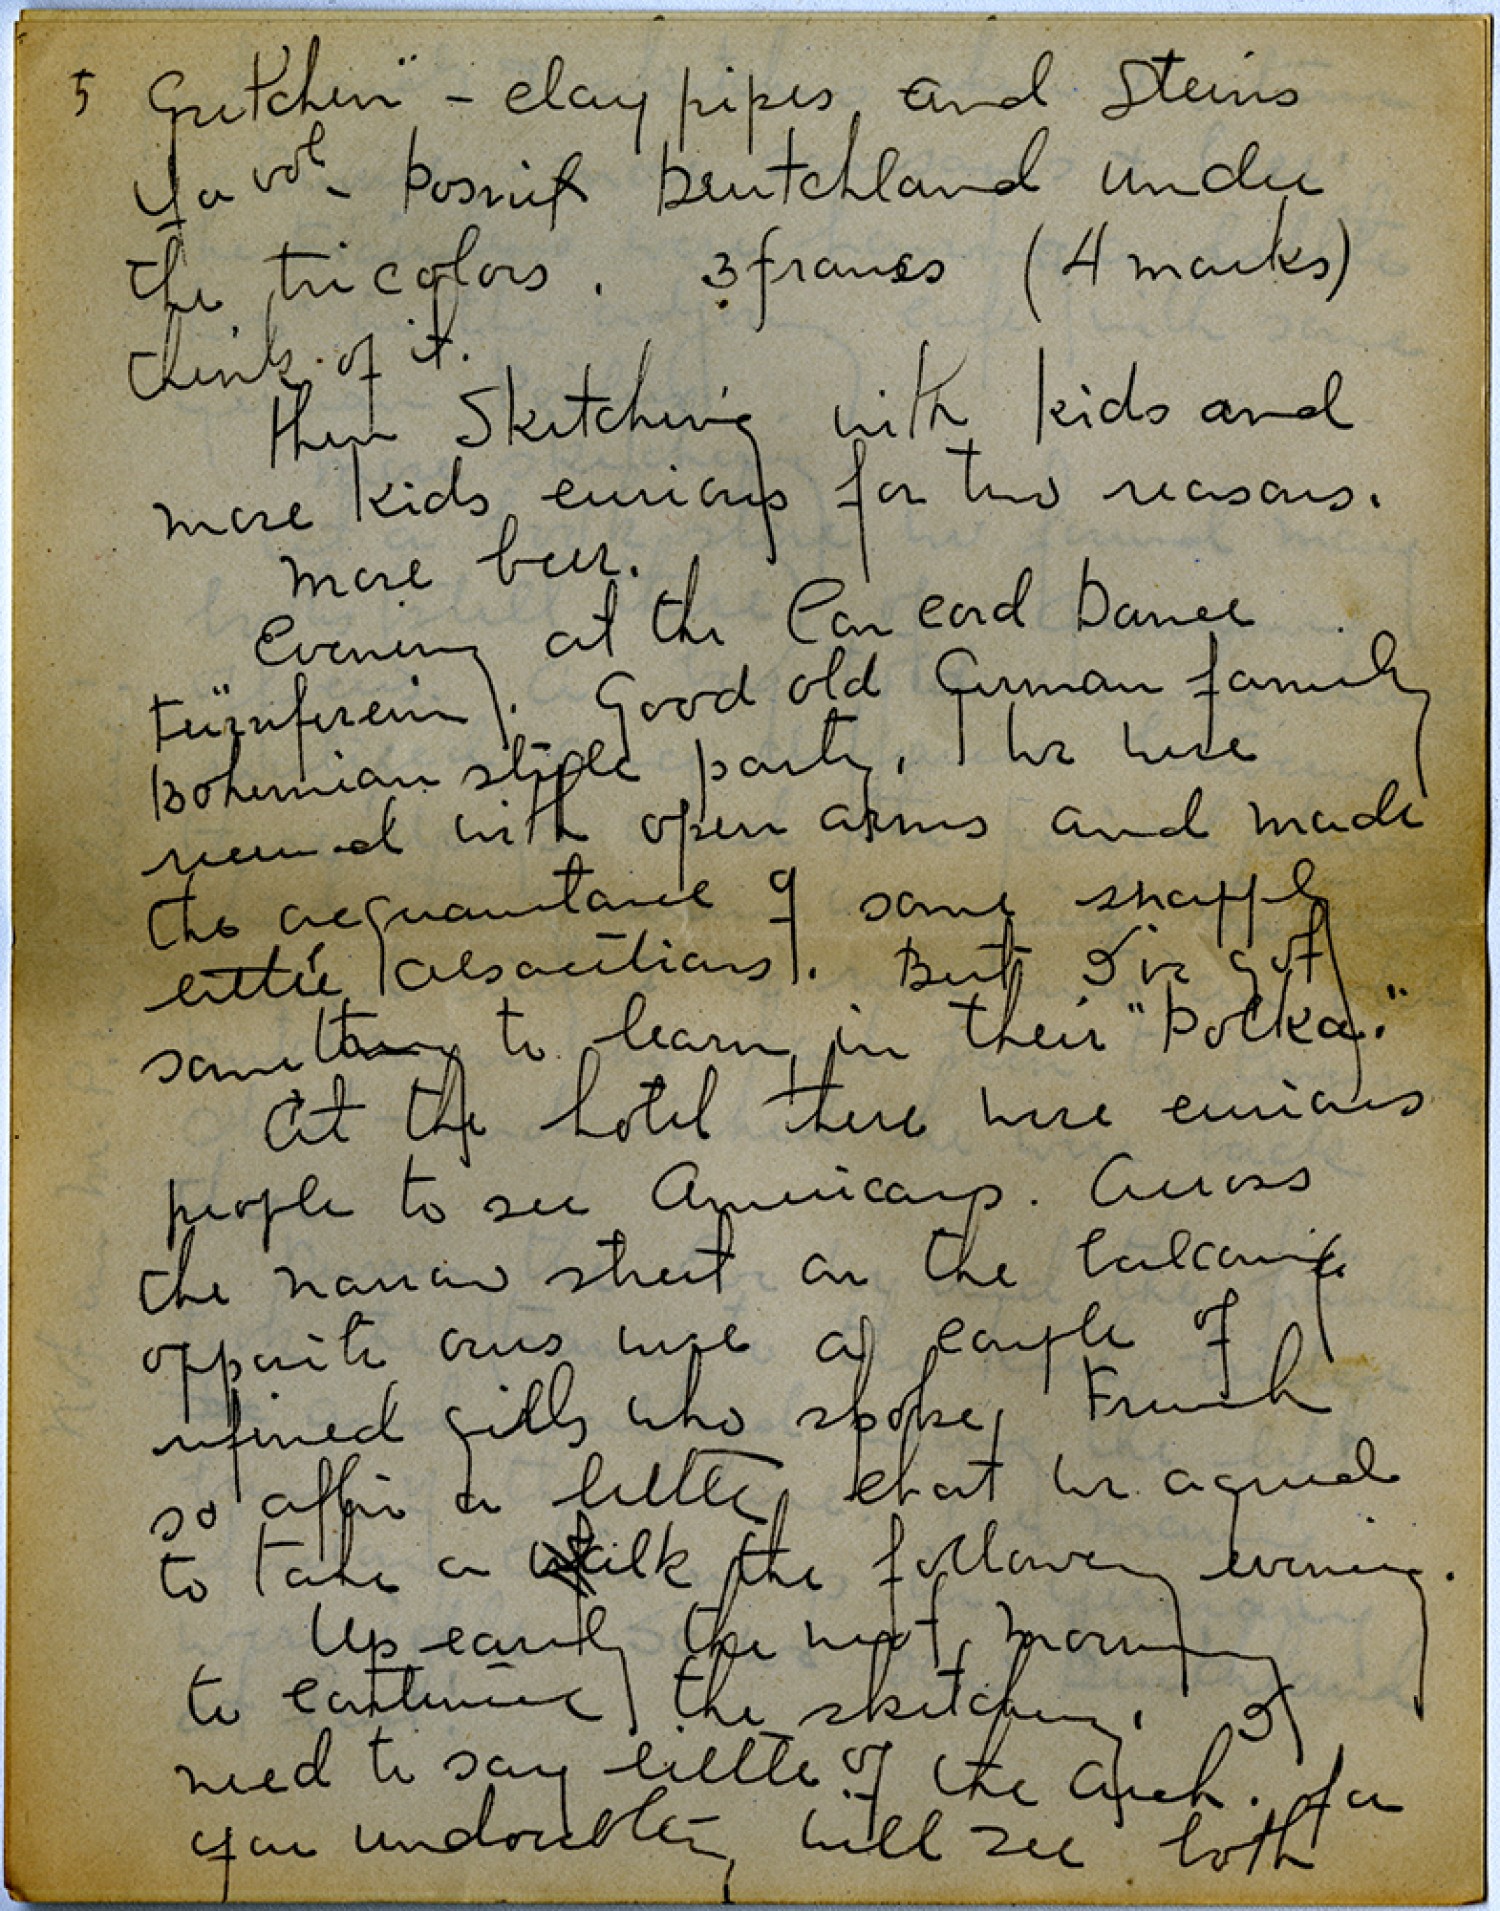 5 Gretchen" - clay pipes and Steins
Ya vol - Deutchland under
the tricolors. 3 francs (4 marks)
think of it.
Then Sketching with kids and
more kids curious for two reasons.
More beer.
Evening at the Concord Dance
türnferein. Good old German family
Bohemian style party, we were
received with open arms and made
the acquaintance of some snappy
little alsacitians. But I've got
something to learn in their "Polka."
At the hotel there were curious
people to see Americans. Across
the narrow street on the balconie
opposite ours were a couple of
refined girls who spoke French
so after a little chat we agreed
to take a walk the following evening.
Up early the next morning
to continue the sketching. I
need to say little of the Arch. for
you undoubtly will see both